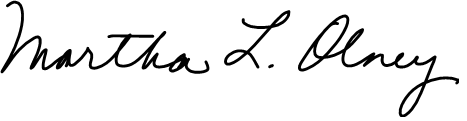 Martha L. Olney